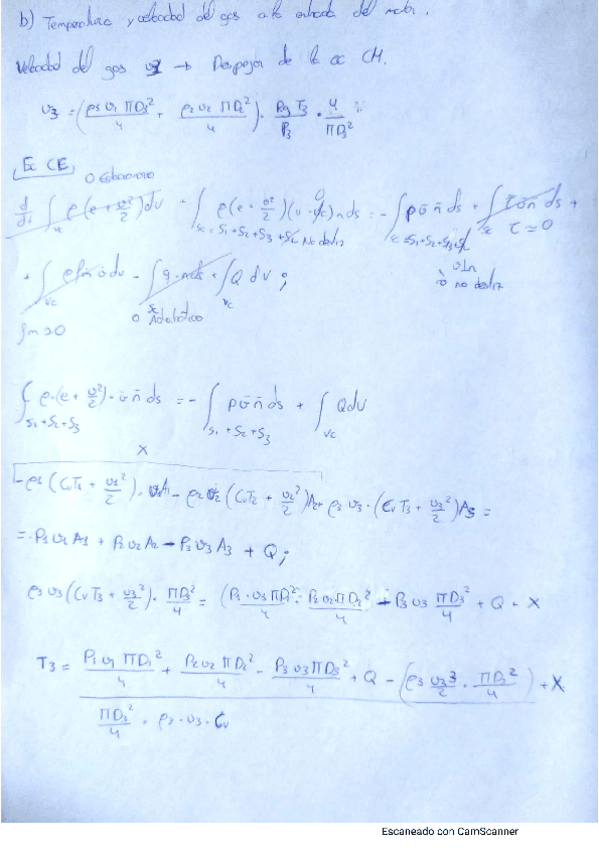 b) Temperatura y velocidad del gas a la entrada del motor.
Velocidad del gas → Despejar de la ec CM.
v3 = (ρ1 v1 ΠD1²/4 + ρ2 v2 ΠD2²/4) · Rg T3/P3 · 4/ΠD3²
Ec CE
0 Estacionario
d/dt ∫vc ρ(e + v²/2) dv + ∫sc = S1+S2+S3+SL ρ(e + v²/2)(v - vc) n ds = - ∫sc = S1+S2+S3+SL p v̄ n̄ ds + ∫sc τ v̄ n̄ ds +
No desliz
τ ≃ 0
+ ∫vc ρ fm v̄ dv - ∫sc q · n ds + ∫vc Q dv ;
no desliz
fm ≃ 0
0 Adiabático
∫S1+S2+S3 ρ·(e + v²/2)· v̄ n̄ ds = - ∫S1+S2+S3 p v̄ n̄ ds + ∫vc Q dv
X
-ρ1 (CvT1 + v1²/2) · v1A1 - ρ2 v2 (CvT2 + v2²/2)A2 + ρ3 v3 · (Cv T3 + v3²/2)A3 =
= P1 v1 A1 + P2 v2 A2 - P3 v3 A3 + Q ;
ρ3 v3 (Cv T3 + v3²/2) · ΠD3²/4 = (P1 · v1 ΠD1²/4 + P2 v2 ΠD2²/4 - P3 v3 ΠD3²/4 + Q - X
T3 = P1 v1 ΠD1²/4 + P2 v2 ΠD2²/4 - P3 v3 ΠD3²/4 + Q - (ρ3 v3³/2 · ΠD3²/4) + X
ΠD3²/4 · ρ3 · v3 · Cv
Escaneado con CamScanner